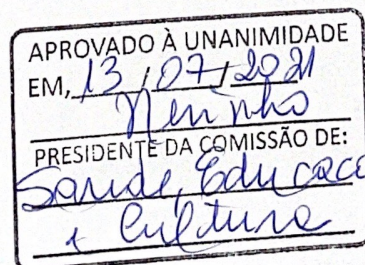 APROVADO À UNANIMIDADE
EM, 13 / 07 / 2021
Neninho
PRESIDENTE DA COMISSÃO DE:
Saúde, Educace
e Cultura